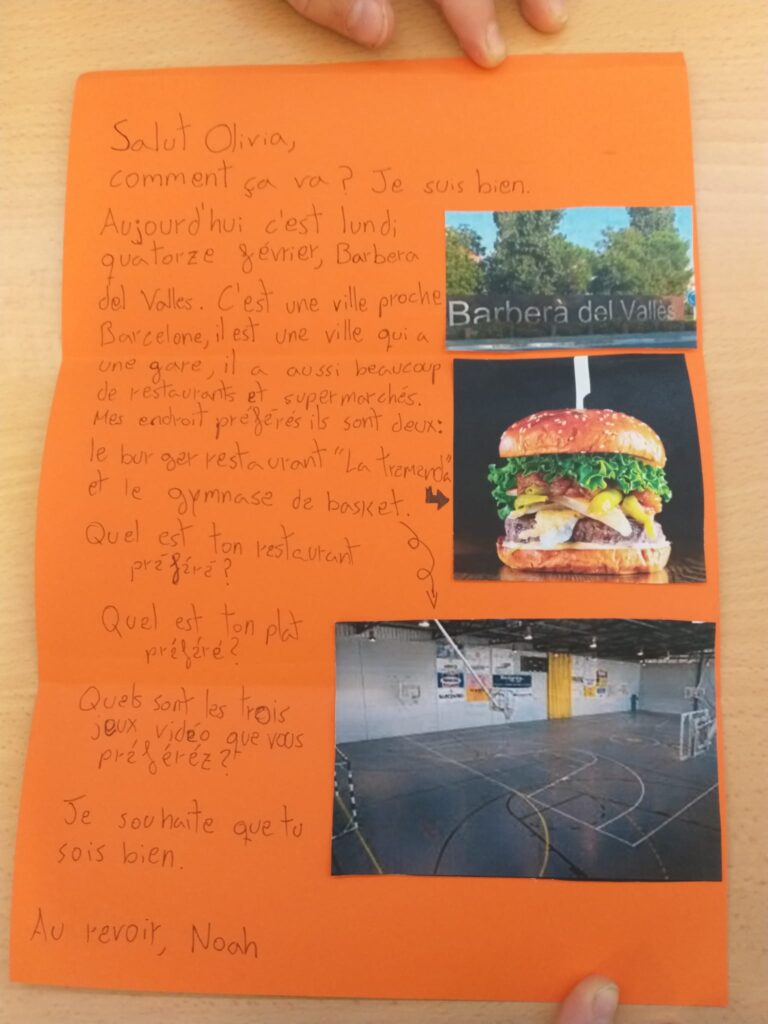 Salut Olivia,
comment ça va? Je suis bien.
Aujourd'hui c'est lundi
quatorze février, Barbera
del Valles. C'est une ville proche
Barcelone, il est une ville qui a
une gare, il a aussi beaucoup
de restaurants et supermarchés.
Mes endroit préférés ils sont deux:
le burger restaurant "La tremenda"
et le gymnase de basket.
Barberà del Vallès
Quel est ton restaurant
préféré?
Quel est ton plat
préféré?
Quels sont les trois
jeux vidéo que vous
préféréz?
Je souhaite que tu
sois bien.
Au revoir, Noah